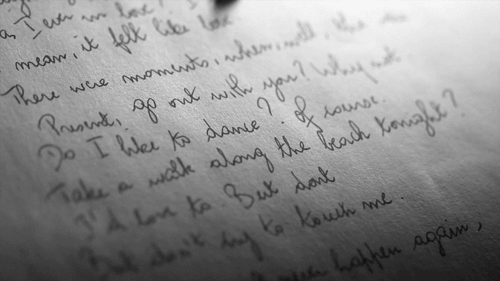 as I ever in love? I
mean, it felt like love.
There were moments, when, well, the
Present, go out with you? Why not
Do I like to dance? Of course.
Take a walk along the beach tonight?
I'd love to. But dont
But don't try to touch me.
never happen again,